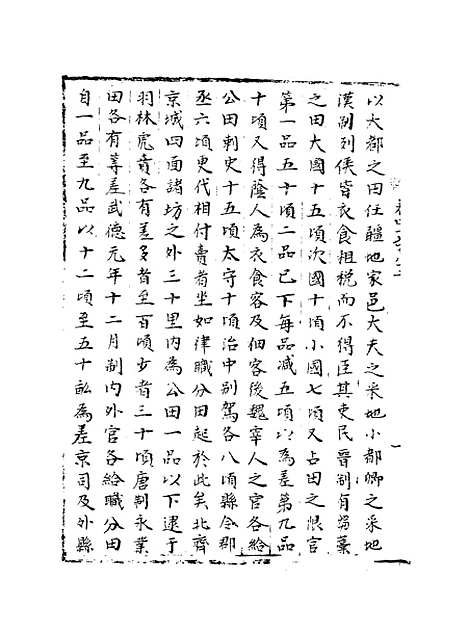 以大都之田任疆地家邑大夫之采地小都卿之采地
漢制列侯皆衣食租税而不得臣其吏民晉制有芻藁
之田大國十五頃次國十頃小國七頃又占田之限官
第一品五十頃二品已下每品减五頃以為差第九品
十頃又得蔭人為衣食客及佃客後魏宰人之官各給
公田刺史十五頃太守十頃治中别駕各八頃縣令郡
丞六頃更代相付賣者坐如律職分田起於此矣北齊
京城四面諸坊之外三十里内為公田一品以下逮于
羽林虎賁各有差多者至百頃少者三十頃唐制永業
田各有等差武德元年十二月制内外官各給職分田
自一品至九品以十二頃至五十畆為差京司及外縣